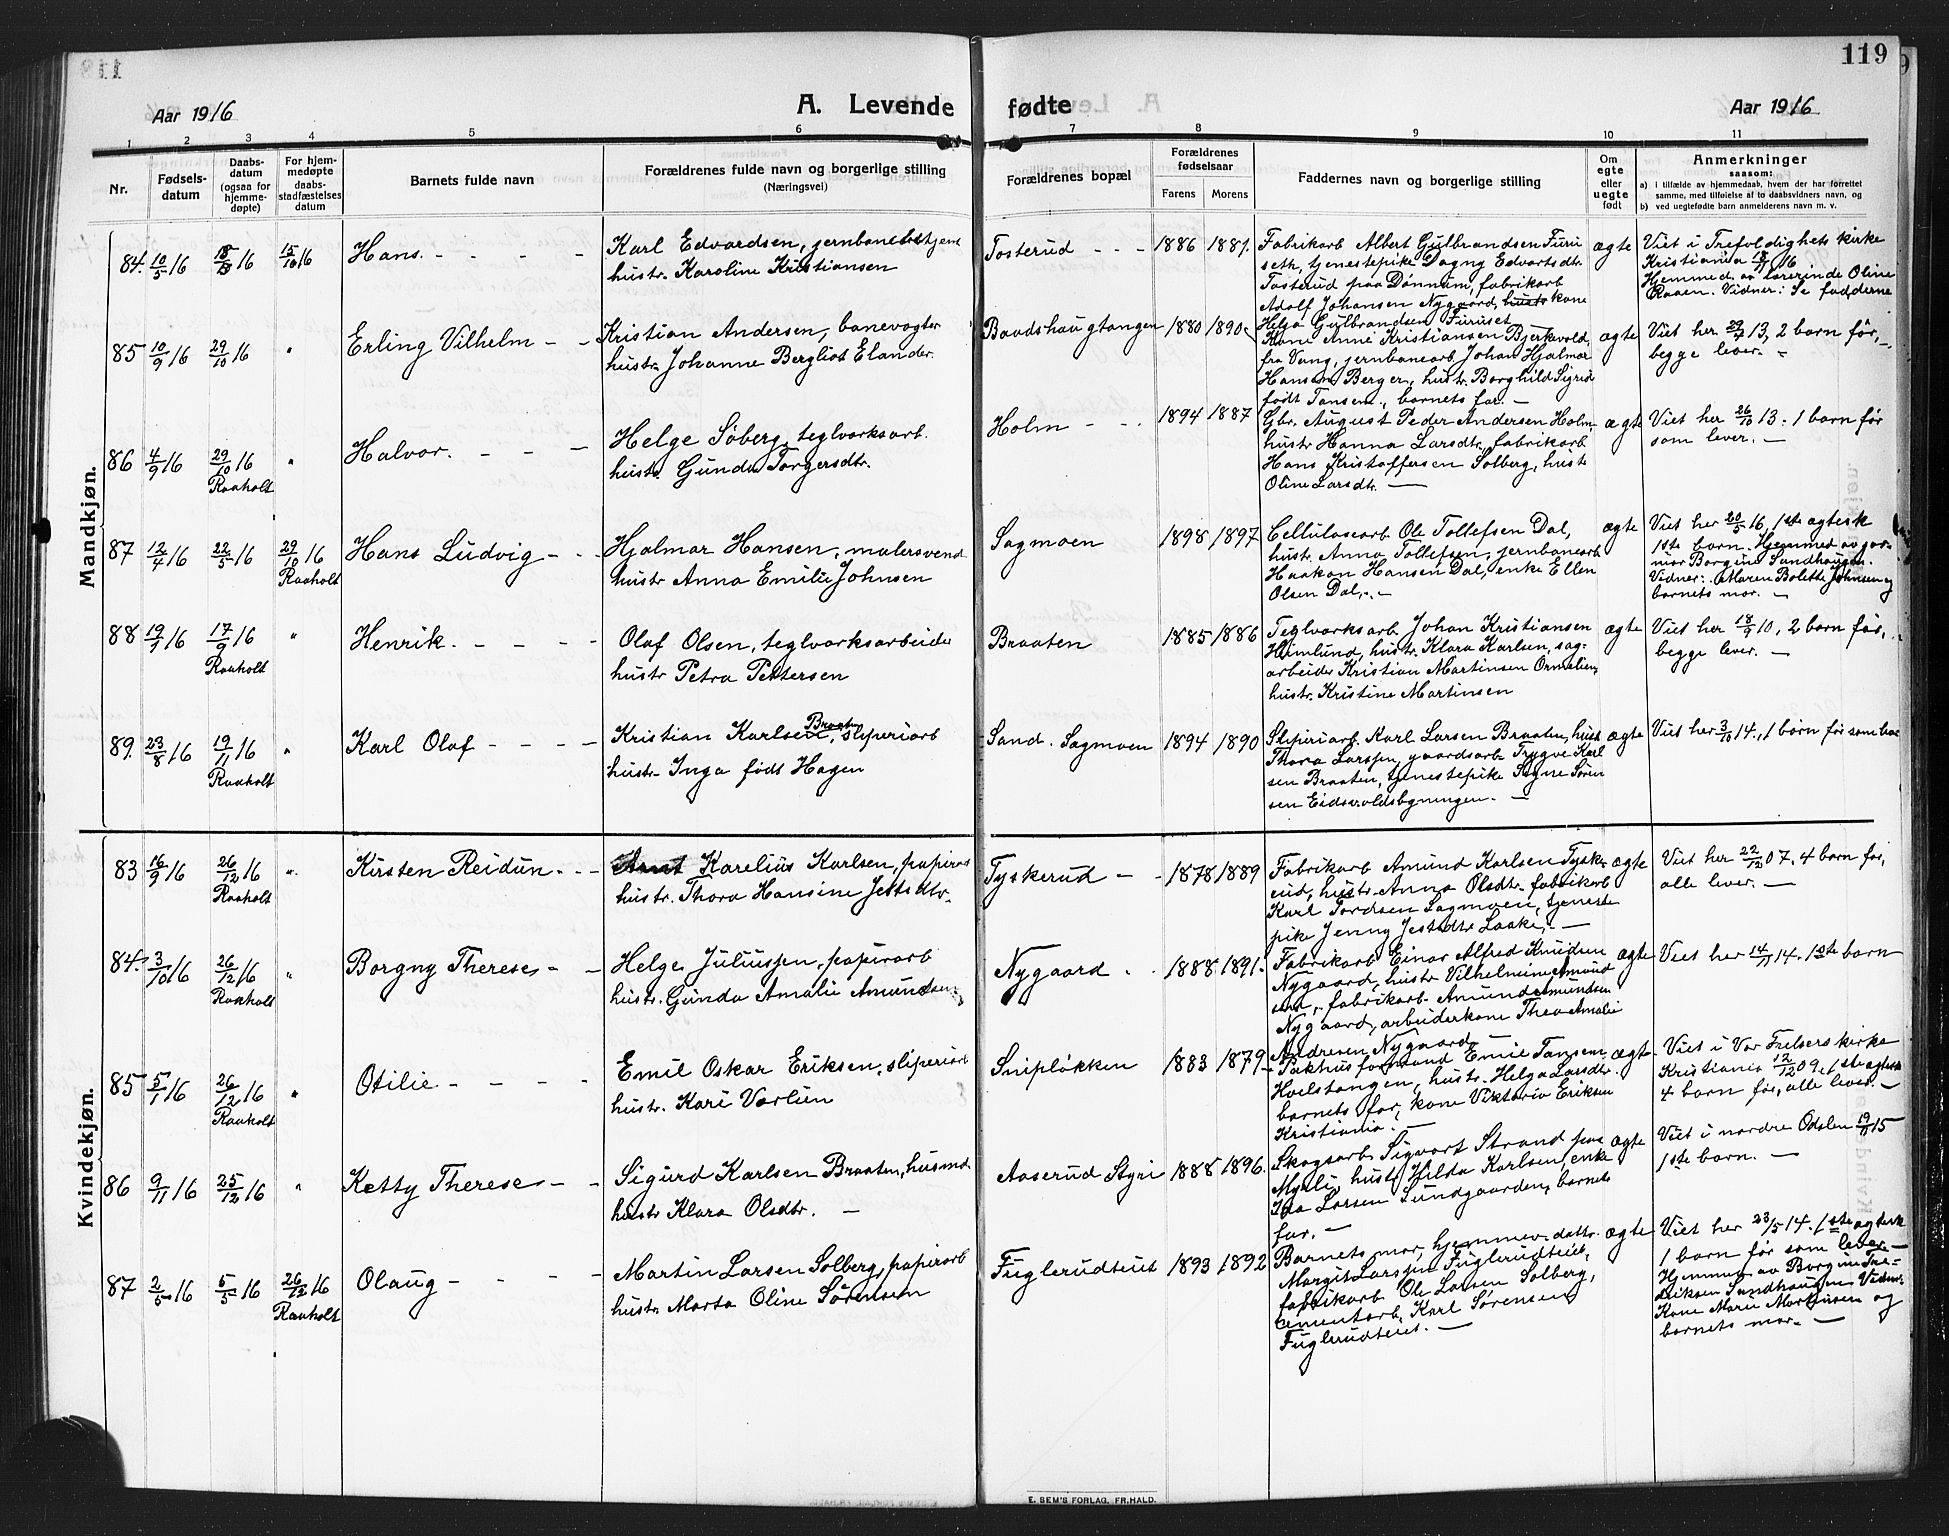 119
Aar 1916
A. Levende fødte
Aar 1916
1 2 3 4 5 6 7 8 9 10 11
Nr.
Fødsels-
datum
Daabs-
datum
(ogsaa for
hjemme-
døpte)
For hjem-
medøpte
daabs-
stadfæstelses
datum
Barnets fulde navn
Forældrenes fulde navn og borgerlige stilling
(Næringsvei)
Forældrenes bopæl
Forældrenes
fødselsaar
Farens Morens
Faddernes navn og borgerlige stilling
Om
egte
eller
uegte
født
Anmerkninger
saasom:
a) i tilfælde av hjemmedaab, hvem der har forrettet
samme, med tilføielse af to daabsvidners navn, og
b) ved uegtefødte barn anmelderens navn m. v.
Mandkjøn.
84. 10/5 16 16 15/10 16 Hans. - - - -
Karl Edvardsen, jernbanebetjent
hustr. Karoline Kristiansen
Tosterud - - - 1886 1881.
Fabrikarb Albert Gulbrandsen Furu
seth, tjenestepike Dagny Edvartsdtr.
Tosterud paa Dønnum, fabrikarb
Adolf Johansen Nygaard, kone
Helga Gulbrandsen Furuset
ægte
Viet i Trefoldighets kirke
Kristiania 16
Hjemmed. av lærerinde Oline
Raaen. Vidner: Se fadderne
85 10/9 16 29/10 16 " Erling Vilhelm - -
Kristian Andersen, banevogter
hustr. Johanne Bergliot Elander.
Baadshaugtangen 1880 1890
Kone Anne Kristiansen Bjerkvold
fra Vang, jernbanearb. Johan Hjalmar
Hansen Berger, hustr. Borghild Sigrid
født Jansen, barnets far. -
ægte
Viet her 13, 2 barn før,
begge lever. -
86 4/9 16 29/10 16 Raaholt " Halvor. - - - -
Helge Søberg, teglverksarb.
hustr. Gunda Torgersdtr.
Holm - - - 1894 1887
Gbr. August Peder Andersen Holm
hustr Hanna Larsdtr., fabrikarb
Hans Kristoffersen Solberg, hustr
Oline Larsdtr. -
ægte
Viet her 26/10 13. 1 barn før
som lever. -
87 12/4 16 22/5 16 29/10 16 Raaholt Hans Ludvig - - -
Hjalmar Hansen, malersvend
hustr Anna Emilie Johnsen
Sagmoen 1898 1897
Cellulosearb Ole Tollefsen Dal,
hustr. Anna Tollefsen, jernbanearb
Haakon Hansen Dal, enke Ellen
Olsen Dal, -
ægte
Viet her 20/5 16, 1ste egtesk
1ste barn. Hjemmed av jor-
mor Borgine Sandhaugen.
Vidner: Maren Bolette Johnsen og
barnets mor. -
88 19/7 16 17/9 16 Raaholt " Henrik. - - - -
Olaf Olsen, teglverksarbeider
hustr Petra Pettersen
Braaten 1885 1886
Teglverksarb Johan Kristiansen
Heimlund, hustr. Klara Karlsen, sag-
arbeider Kristian Martinsen Ormalien,
hustr. Kristine Martinsen
ægte
Viet her 18/9 10, 2 barn før,
begge lever. -
89. 23/8 16 19/11 16 Raaholt " Karl Olaf - - - -
Kristian Karlsen Braaten, sliperiarb
hustr. Inga født Hagen
Sand. Sagmoen 1894 1890
Sliperiarb. Karl Larsen Braaten, hust
Thora Larssen, gaardsarb Trygve Karl
sen Braaten, tjenestepike Signe Søren
sen Eidsvoldsbygningen. -
ægte
Viet her 3/10 14., 1 barn før som
Kvindekjøn.
83 16/9 16 26/12 16 Raaholt " Kirsten Reidun - - -
Karelius Karlsen, papirarb
hustr. Thora Hansine Jettsdtr.
Tyskerud - - 1878 1889
Fabrikarb Amund Karlsen Tysk-
rud, hustr Anna Olsdtr. fabrikarb
Karl Tordsen Sagmoen, tjeneste
pike Jenny Jestsdtr Laake, -
ægte
Viet her 22/12 07. 4 barn før,
alle lever. -
84. 3/10 16 26/12 16 Raaholt " Borgny Therese - -
Helge Juliussen, papirarb
hustr. Gunda Amalie Amundsen
Nygaard - - 1888 1891.
Fabrikarb Einar Alfred Knudsen
Nygaard, hustr Vilhelmine Amund
sen, fabrikarb Amund Amundsen
Nygaard, arbeiderkone Thea Amalie
Andresen Nygaard -
ægte
Viet her 14/ 14. 1ste barn
85 5/1 16 26/12 16 Raaholt " Otilie - - - -
Emil Oskar Eriksen, sliperiarb
hustr. Kari Varlien
Snipløkken 1883 1879
Pakhusformand Emil Jansen
Hvilstangen, hustr. Helga Larsdtr.
barnets far, kone Viktoria Eriksen
Kristiania. -
ægte
Viet i Vor Frelsers kirke
Kristiania 12/12 09, 1ste egtesk
4 barn før, alle lever. -
86 9/11 16 25/12 16 " Ketty Therese - -
Sigurd Karlsen Braaten, husmd.
hustr Klara Olsdtr. -
Aaserud Styri 1888 1896.
Skogsarb Sigvart Strand paa
Myrli, hustr Hilda Karlsen, enke
Ida Larsen Sundgaarden, barnets
far. -
ægte
Viet i nordre Odalen 15
1ste barn. -
87 2/5 16 5/5 16 26/12 16 Raaholt Olaug - - - -
Martin Larsen Solberg, papirarb
hustr. Marta Oline Sørensen
Fuglerudteiet 1893 1892
Barnets mor, hjemmev. datter
Margit Larssen Fuglerudteiet,
fabrikarb Ole Larsen Solberg,
cementarb. Karl Sørensen
Fuglerudteiet. -
ægte
Viet her 23/5 14. 1ste egtesk
1 barn før som lever. -
Hjemmed av Borgine Fre-
driksen Sandhaugen Vidner:
Kone Marie Martinsen og
barnets mor. -
E. SEM'S FORLAG, FR.HALD.